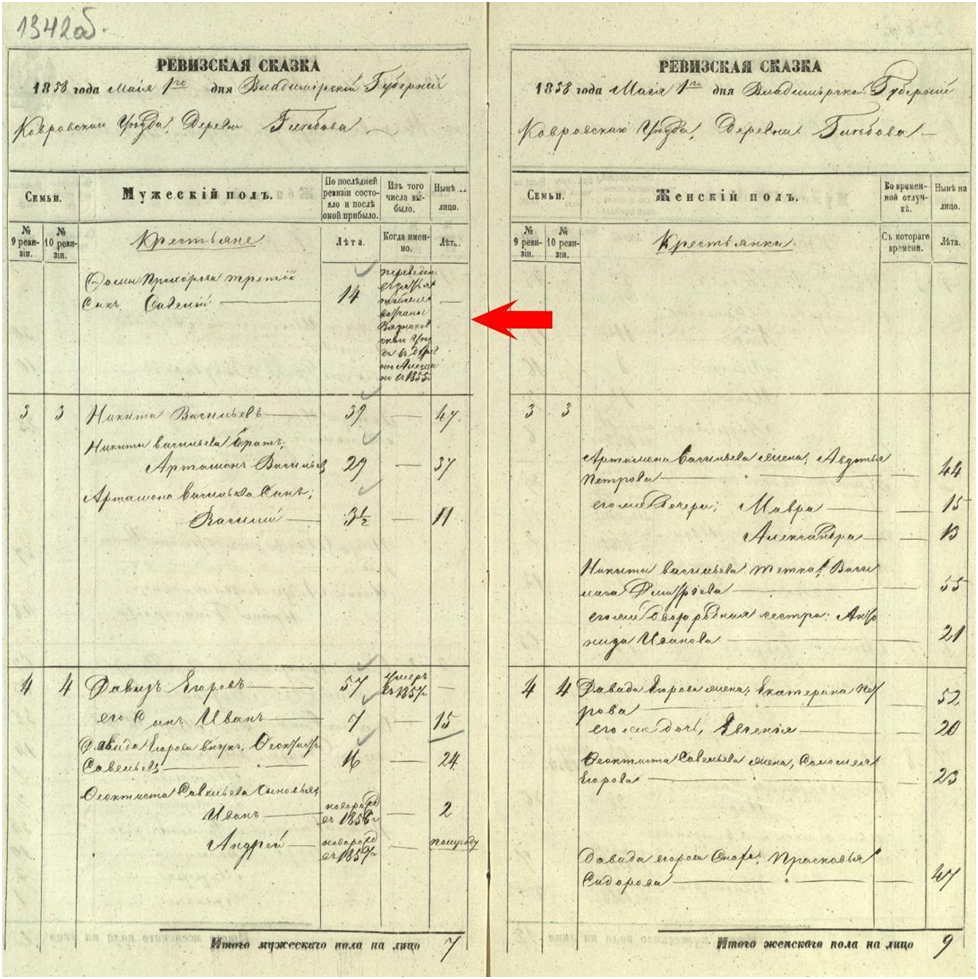 1342об.
РЕВИЗСКАЯ СКАЗКА
1858 года Мая 1го дня Владимірской Губерніи
Ковровскаго Уѣзда, Деревни
Семьи.
Мужескій полъ.
По послѣдней ревизіи состояло и послѣ оной прибыло.
Изъ того числа выбыло.
Нынѣ на лицо.
№ 9 ревизіи.
№ 10 ревизіи.
Крестьяне
Лѣта.
Когда именно.
Лѣта.
Фомы Прохорова третій
Сынъ Савелій 14 —
въ 1855
3 3 Никита Васильевъ 39 — 47
Никиты Васильева братъ,
Артамонъ Васильевъ 29 — 37
Артамона Васильева Сынъ,
Василий 3½ — 11
4 4 Давыдъ Егоровъ 57 умеръ въ 1857 —
его Сынъ Иванъ 7 — 15
Давида Егорова внукъ, Феоктистъ
Савельевъ 16 — 24
Феоктиста Савельева Сыновья
Иванъ новорожд въ 1856 2
Андрей новорожд въ 1857 полгоду
Итого мужескаго пола на лицо 7
РЕВИЗСКАЯ СКАЗКА
1858 года Мая 1го дня Владимірской Губерніи
Ковровскаго Уѣзда, Деревни
Семьи.
Женскій полъ.
Во временной отлучкѣ.
Нынѣ на лицо.
№ 9 ревизіи.
№ 10 ревизіи.
Крестьянки.
Съ котораго времени.
Лѣта.
3 3
Артамона Васильева жена, Авдотья
Петрова 44
его же дочери, Мавра 15
Александра 13
Никиты Васильева тетка, Васи
лиса Дмитріева 55
его же двоюродная сестра,
Иванова 21
4 4 Давида Егорова жена, Екатерина
52
его же дочь, Евгенія 20
Феоктиста Савельева жена, Соломея
Егорова 23
Давида Егорова Сноха, Прасковья
Сидорова 47
Итого женскаго пола на лицо 9